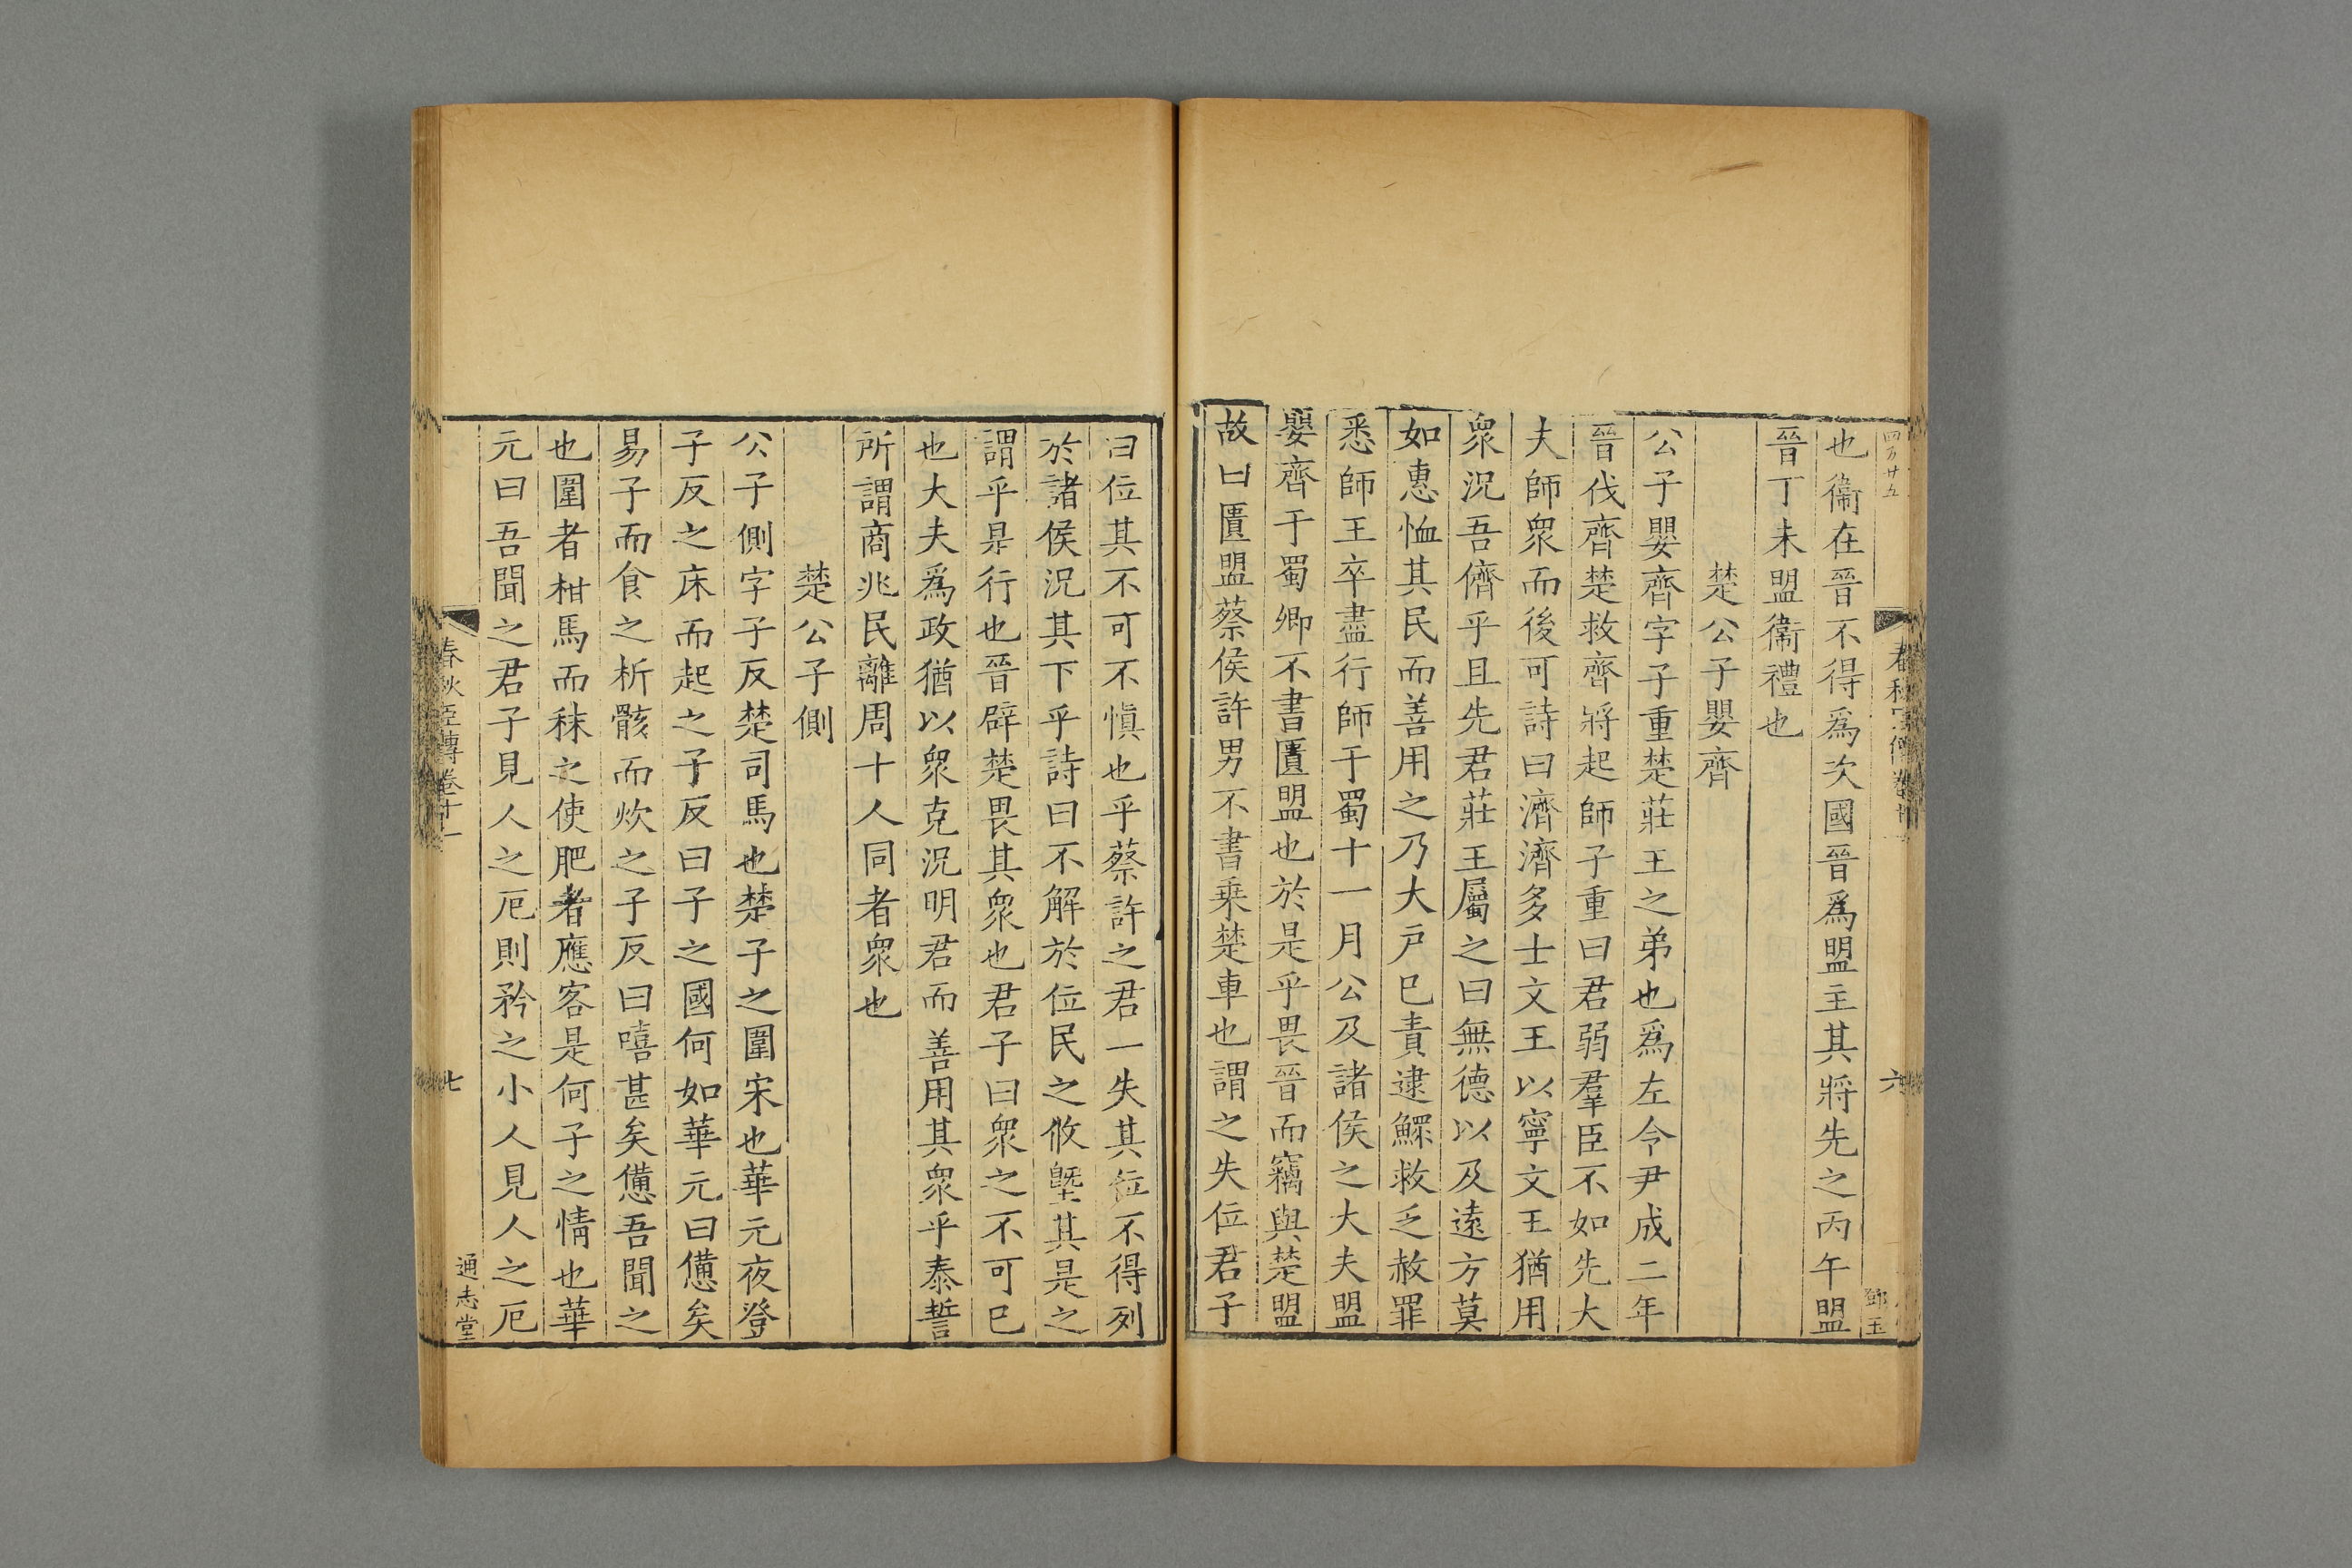 四百廿五
也衞在晉不得爲次國晉爲盟主其將先之丙午盟
晉丁未盟衞禮也
楚公子嬰齊
公子嬰齊字子重楚莊王之弟也爲左令尹成二年
晉伐齊楚救齊將起師子重曰君弱羣臣不如先大
夫師衆而後可詩曰濟濟多士文王以寧文王猶用
衆況吾儕乎且先君莊王屬之曰無德以及遠方莫
如惠恤其民而善用之乃大戸巳責逮鰥救乏赦罪
悉師王卒盡行師于蜀十一月公及諸侯之大夫盟
嬰齊于蜀卿不書匱盟也於是乎畏晉而竊與楚盟
故曰匱盟蔡侯許男不書乗楚車也謂之失位君子
六
鄧玉
曰位其不可不愼也乎蔡許之君一失其位不得列
於諸侯況其下乎詩曰不解於位民之攸塈其是之
謂乎是行也晉辟楚畏其衆也君子曰衆之不可巳
也大夫爲政猶以衆克況明君而善用其衆乎泰誓
所謂商兆民離周十人同者衆也
楚公子側
公子側字子反楚司馬也楚子之圍宋也華元夜登
子反之床而起之子反曰子之國何如華元曰憊矣
易子而食之析骸而炊之子反曰嘻甚矣憊吾聞之
也圍者柑馬而秣之使肥者應客是何子之情也華
元曰吾聞之君子見人之厄則矜之小人見人之厄
春秋臣傳卷十一
七
通志堂